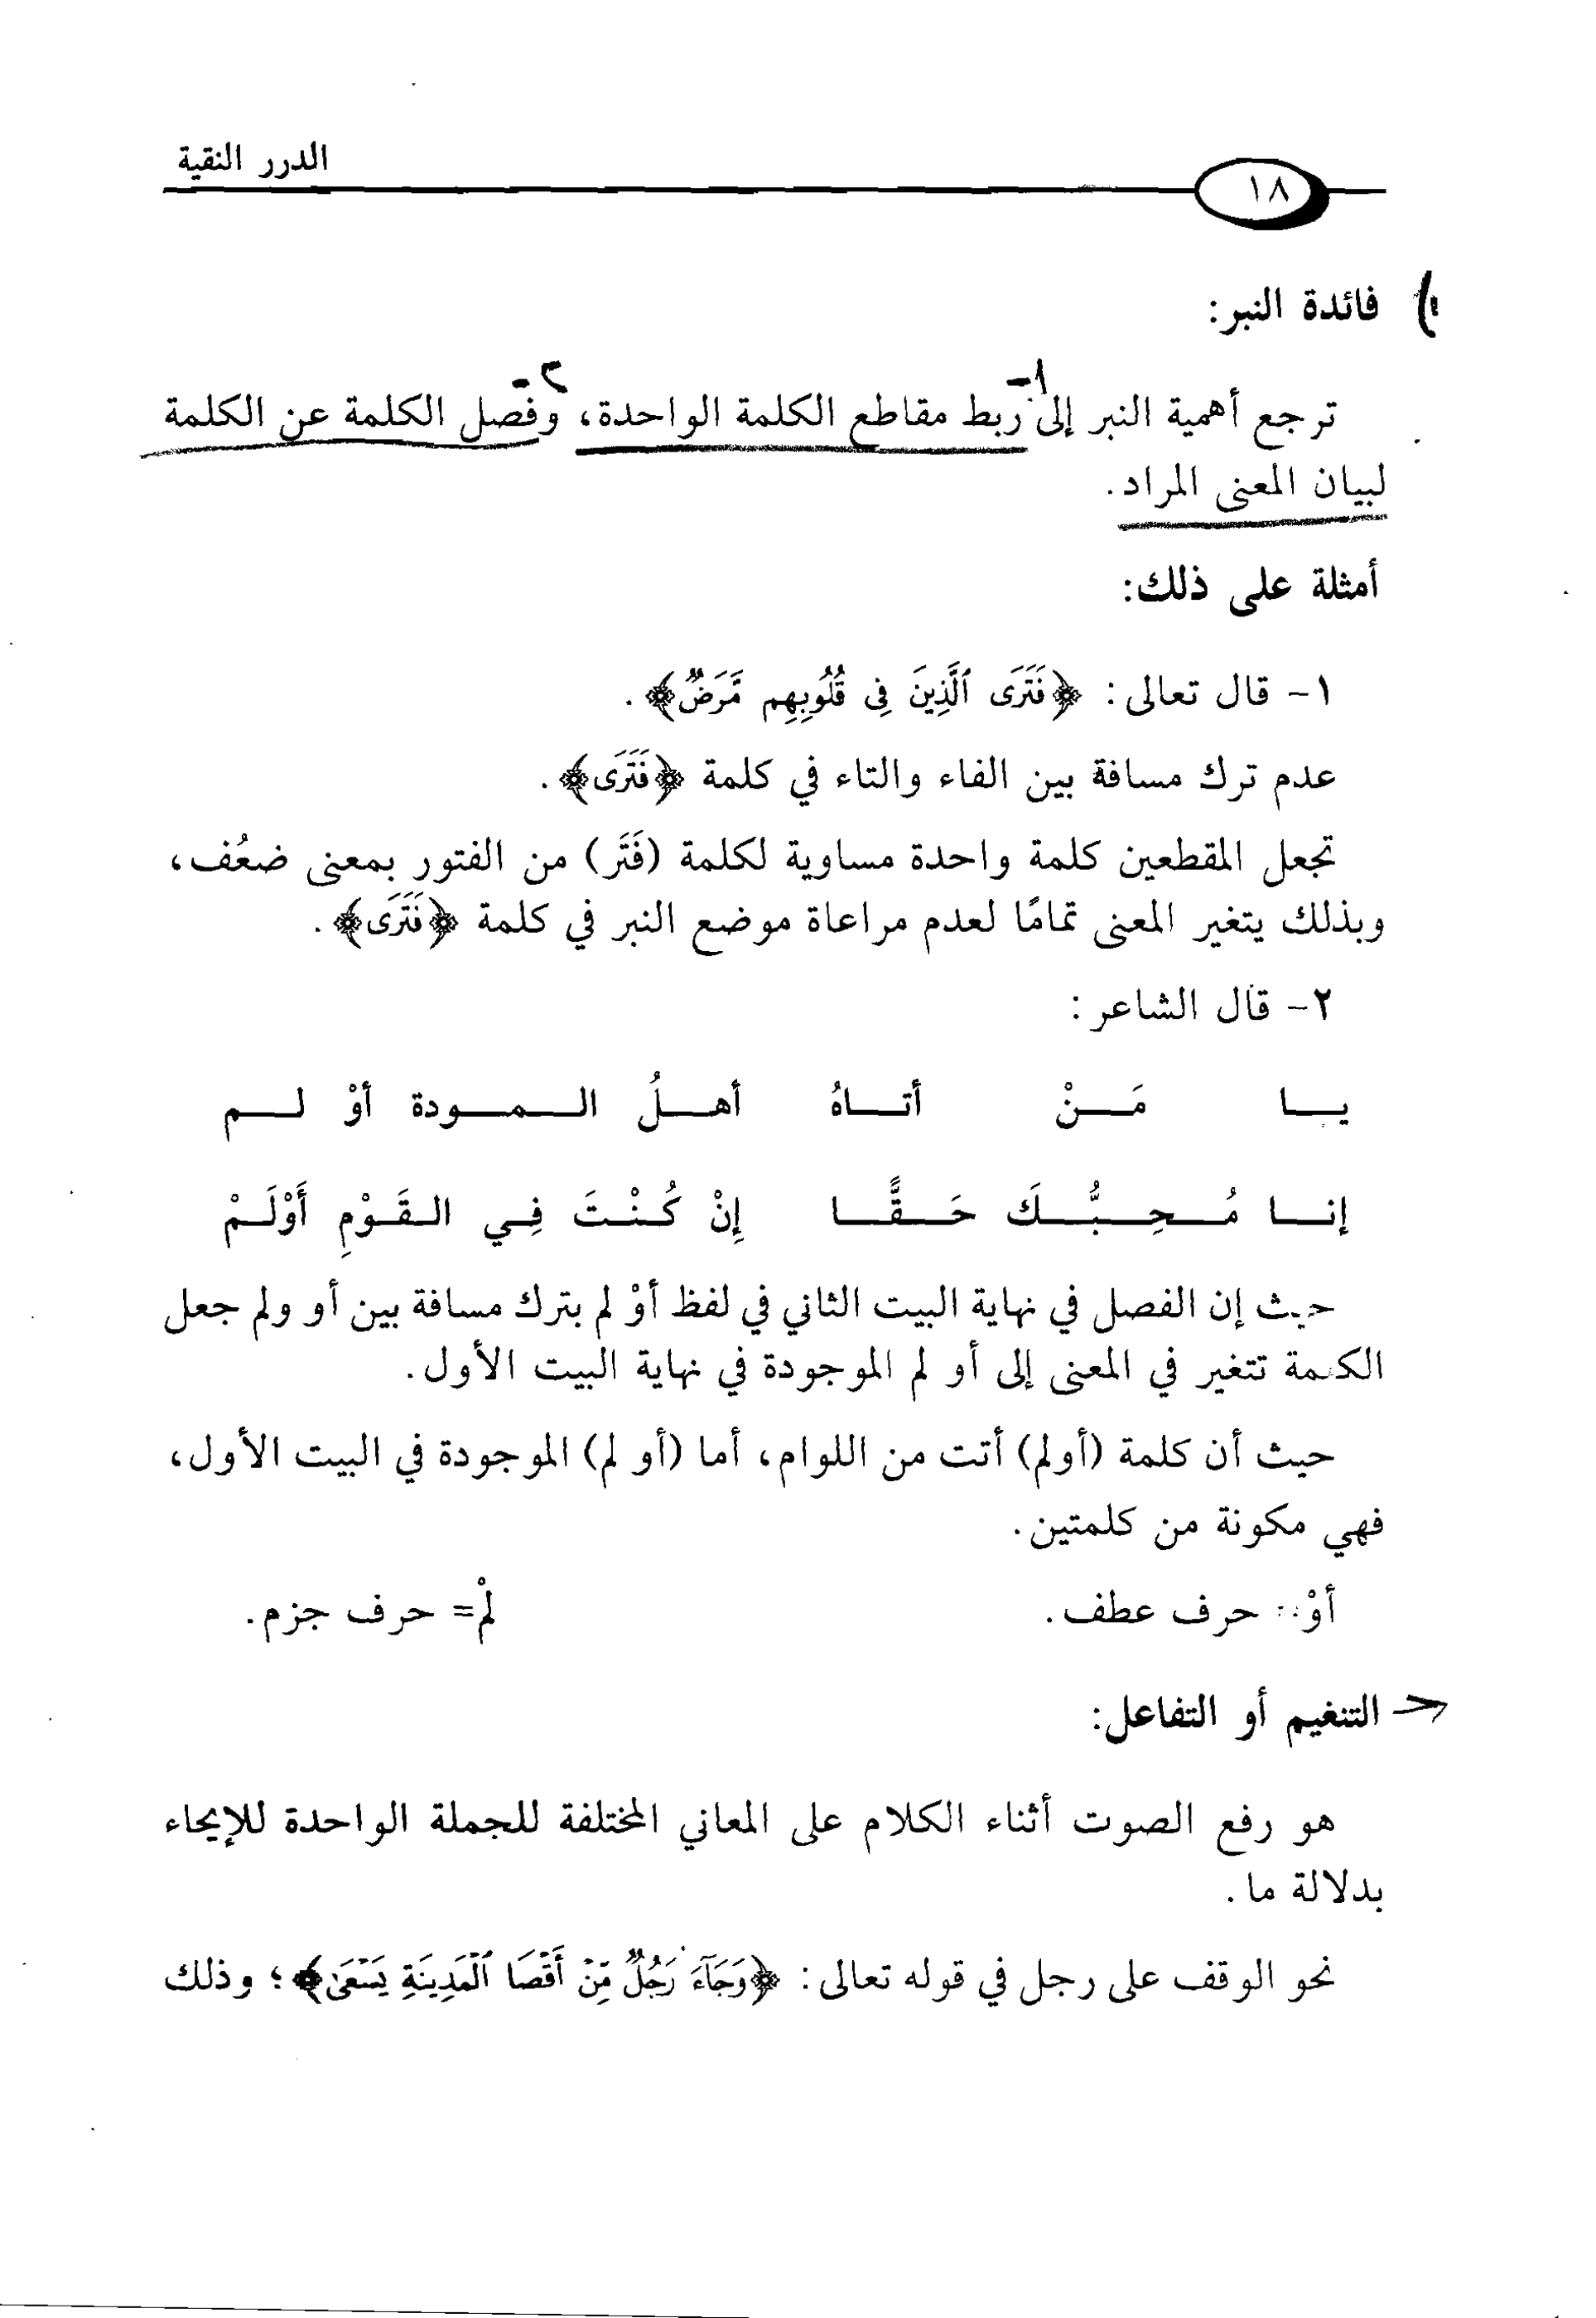 الدرر النقية
١٨
فائدة النبر:
١-
٢-
ترجع أهمية النبر إلى ربط مقاطع الكلمة الواحدة، وفصل الكلمة عن الكلمة
لبيان المعنى المراد.
أمثلة على ذلك:
١- قال تعالى: ﴿فَتَرَى ٱلَّذِينَ فِى قُلُوبِهِم مَّرَضٌ﴾.
عدم ترك مسافة بين الفاء والتاء في كلمة ﴿فَتَرَى﴾.
تجعل المقطعين كلمة واحدة مساوية لكلمة (فَتَر) من الفتور بمعنى ضعُف،
وبذلك يتغير المعنى تمامًا لعدم مراعاة موضع النبر في كلمة ﴿فَتَرَى﴾.
٢- قال الشاعر:
يـــا مَـــنْ أتـــاهُ أهـــلُ الـــمـــودة أوْ لـــم
إنـــا مُـــحِـــبُّـــكَ حَـــقًّـــا إِنْ كُـنْـتَ فِـي الـقَـوْمِ أَوْلَـمْ
حيث إن الفصل في نهاية البيت الثاني في لفظ أوْ لم بترك مسافة بين أو ولم جعل
الكلمة تتغير في المعنى إلى أو لم الموجودة في نهاية البيت الأول.
حيث أن كلمة (أولم) أتت من اللوام، أما (أو لم) الموجودة في البيت الأول،
فهي مكونة من كلمتين.
أوْ= حرف عطف. لمْ= حرف جزم.
التنغيم أو التفاعل:
هو رفع الصوت أثناء الكلام على المعاني المختلفة للجملة الواحدة للإيحاء
بدلالة ما.
نحو الوقف على رجل في قوله تعالى: ﴿وَجَآءَ رَجُلٌ مِّنْ أَقْصَا ٱلْمَدِينَةِ يَسْعَىٰ﴾؛ وذلك